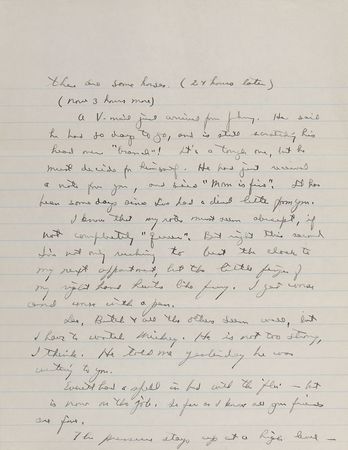 there are some horses. (24 hours later)
(now 3 hours more)
A V-mail just arrived from Johnny. He said
he has 30 days to go, and is still scratching his
head over "branch"! It's a tough one, but he
must decide for himself. He had just received
a note from you, and said "Mom is fine". It has
been some days since I've had a direct letter from you.
I know that my notes must seem abrupt, if
not completely "queer". But right this second
I'm not only rushing to beat the clock to
my next appointment, but the little finger of
my right hand hurts like fury. I get worse
and worse with a pen.
Lee, Butch & all the others seem well, but
I have to watch Mickey. He is not too strong,
I think. He told me yesterday he was
writing to you.
Everett had a spell in bed with the flu — but
is now on the job. So far as I know all your friends
are fine.
The pressure stays up at a high level —